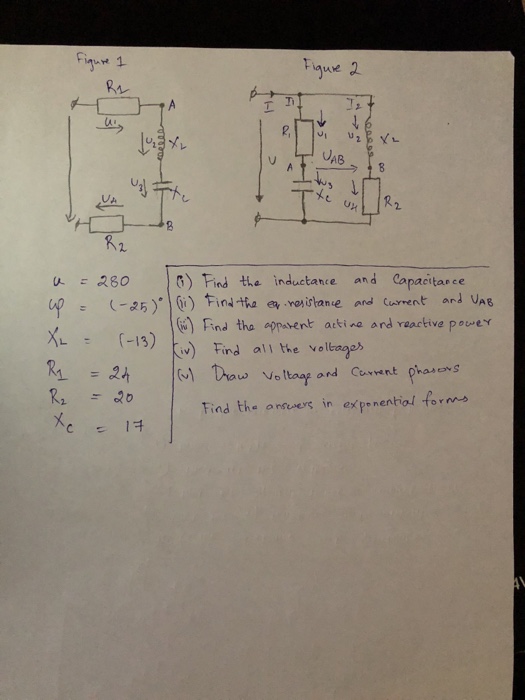 Figure 1
R1
A
U1
U2 XL
U3 XC
U4
B
R2
Figure 2
I I1 I2
R1 U1 U2 XL
U A UAB B
U3
XC U4 R2
u = 280
φ = (-25)°
XL = (-13)
R1 = 24
R2 = 20
Xc = 17
(i) Find the inductance and Capacitance
(ii) Find the eq. resistance and current and UAB
(iii) Find the apparent active and reactive power
(iv) Find all the voltages
(v) Draw voltage and Current phasors
Find the answers in exponential forms